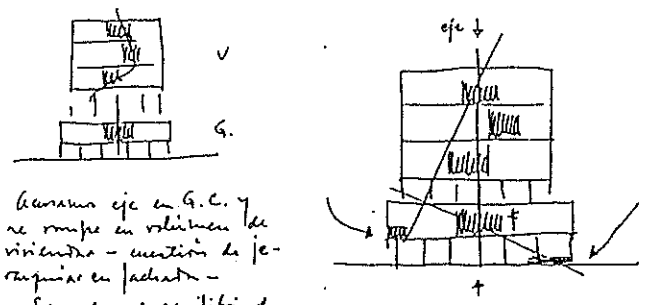 eje
V
G.
Acusamos eje en G.C. y
se rompe en volúmen de
viviendas - cuestión de je-
rarquías en fachada -